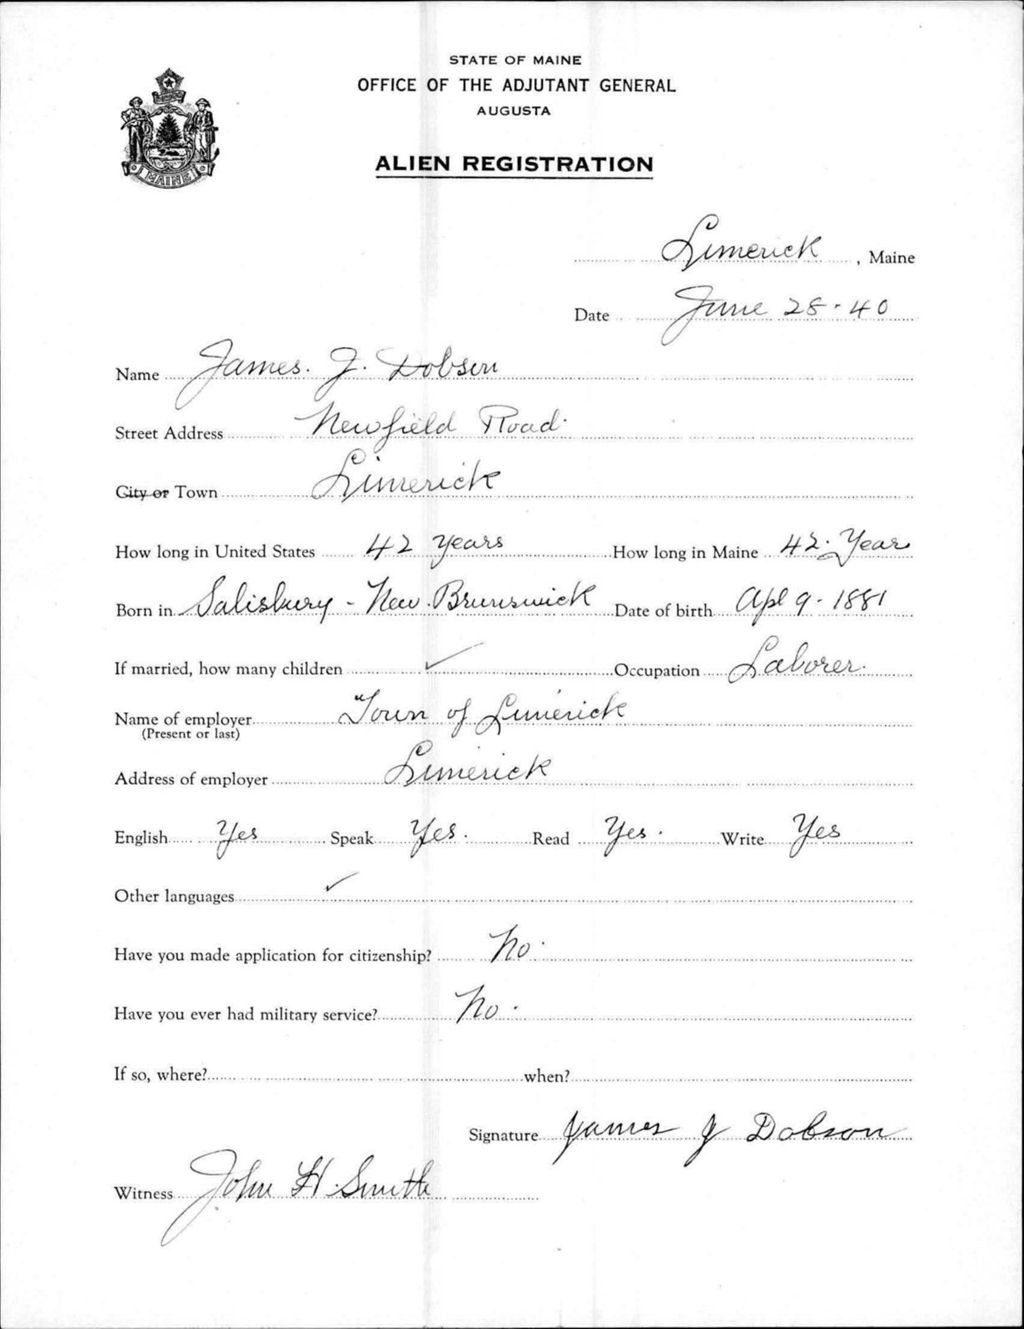 STATE OF MAINE
OFFICE OF THE ADJUTANT GENERAL
AUGUSTA
ALIEN REGISTRATION
MAINE
Limerick, Maine
Date June 28 - 40
Name James. J. Dobson
Street Address Newfield Road.
City or Town Limerick
How long in United States 42 years How long in Maine 42. Year
Born in Salisbury - New. Brunswick Date of birth Apl 9 - 1881
If married, how many children ✓ Occupation Laborer.
Name of employer "Town of Limerick
(Present or last)
Address of employer Limerick
English Yes Speak Yes. Read Yes. Write Yes
Other languages ✓
Have you made application for citizenship? No.
Have you ever had military service? No.
If so, where? when?
Signature James J Dobson
Witness John H. Smith